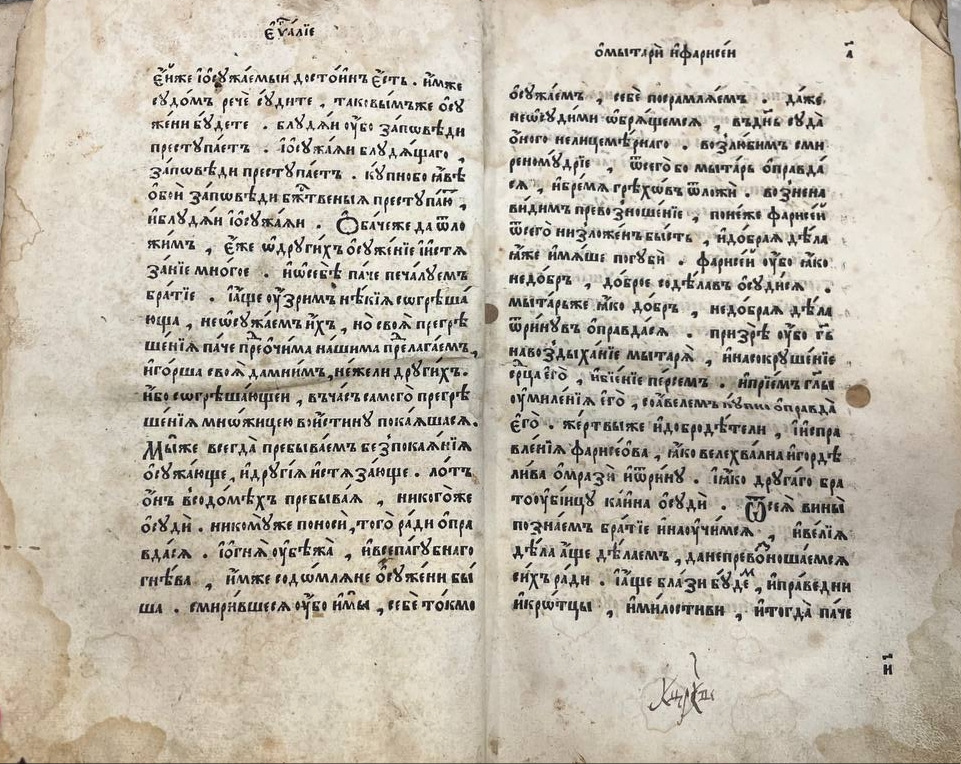 є҆ѵⷢ҇а́лїе
є҆́йже і҆ѡ҆сꙋжа́емыи досто́инъ є҆́сть . и҆́мже
сꙋдо́мъ речѐ сꙋ́дите , таковы́мъже ѻ҆сꙋ
же́ни бꙋ́дете . блꙋдѧ́и ᲂу҆́бо за́пѡвѣди
престꙋпа́етъ . і҆ѻ҆сꙋжа́ѧи блꙋдѧ́щаго ,
за́пѡвѣди престꙋпа́етъ . кꙋпноⷡ҇бо ꙗ҆́вѣ
ѻ҆бо́й за́пѡвѣди бжⷭ҇твеныѧ престꙋпа́ютⸯ ,
и҆блꙋдѧ́и і҆ѻ҆сꙋжа́ѧи . Ѻ҆ба́чеже да ѿло
жи́мъ , є҆́же ѡ҆дрꙋги́хъ ѻ҆сꙋже́нїе и҆истѧ
за́нїе мно́гое . и҆ѡ҆себѣ̀ па́че печа́лꙋемъ
бра́тїе . і҆а́ще ᲂу҆́зримъ нѣ́кїѧ сѡгрѣша́
юща , неѡ҆сꙋжа́емъ и҆́хъ , но̀ своѧ̀ прегрѣ
ше́нїѧ па́че преⷣѻчи́ма на́шима преⷣлага́емъ ,
и҆го́рша своѧ̀ да мни́мъ , не́жели дрꙋги́хъ .
и҆́бо сѡгрѣша́ющеи , въча́съ самого̀ прегрѣ
ше́нїѧ мнѡ́жицею во́истинꙋ пока́ѧшасѧ .
Мы́же всегда̀ пребыва́емъ безⸯпокаѧ́нїѧ
ѻ҆сꙋжа́юще , и҆дрꙋгі́ѧ и҆стѧза́юще . ло́тъ
ѻ҆́нъ всодо́мѣхъ пребыва́ѧ , никого́же
ѻ҆сꙋдѝ . никомꙋ́же поносѝ , того̀ ра́ди ѻ҆пра
вда́сѧ . і҆ѻ҆гнѧ̀ ᲂу҆бѣжа̀ , и҆всепа́гꙋбнаго
гнѣ́ва , и҆́мже содо́млѧне ѻ҆сꙋже́ни бы́
ша . смири́вшесѧ ᲂу҆́бо и҆мы̀ , себѐ то́кмо
ѻ҆мытарѝ и҆фарисе́и
а҃
ѻ҆сꙋжа́емъ , себѐ посрамлѧ́емъ . да́же
неѡ҆сꙋди́ми ѡ҆брѧ́щемсѧ , въдн҃ь сꙋда̀
ѻ҆́ного нелицемѣ́рнаго . возлю́бимъ сми
реномꙋ́дрїе , ѿсего́ бо мы́тарь ѻ҆правда́
сѧ , и҆бре́мѧ грѣхо́въ ѿложѝ . вознена
ви́димъ превозноше́нїе , поне́же фарисе́й
ѿсего̀ низложе́нъ бы́сть , и҆до́браѧ дѣ́ла
ꙗ҆́же и҆мѧ́ше погꙋбѝ . фарисе́й ᲂу҆́бо ꙗ҆́ко
недо́бръ , до́брое содѣ́лавъ ѻ҆сꙋди́сѧ .
мы́тарьже ꙗ҆́ко до́бръ , недо́браѧ дѣ́ла
ѿри́нꙋвъ ѻ҆правда́сѧ . призрѣ̀ ᲂу҆́бо гⷭ҇ь
навоздыха́нїе мытарѧ̀ , и҆насокрꙋше́нїе
срⷣца є҆гѡ̀ , и҆бїе́нїе пе́рсемъ . и҆прїе́мъ гл҃ы
ᲂу҆миле́нїѧ є҆гѡ̀ , соа́велемъ кꙋ́пно ѻ҆правда̀
є҆го̀ . же́ртвыже и҆добродѣ́тели , и҆испра
вле́нїѧ фарисе́ова , ꙗ҆́ко велехва́лна и҆го́рдѣ
ли́ва ѻ҆мразѝ и҆ѿри́нꙋ . і҆ꙗ҆́ко дрꙋга́го бра
тоᲂу҆бі́йцꙋ ка́ина ѻ҆сꙋдѝ . Ѿсеѧ̀ вины̀
позна́емъ бра́тїе и҆наꙋчи́мсѧ , и҆ве́лїѧ
дѣ́ла а҆́ще дѣ́лаемъ , да непревоⷥноша́емсѧ
си́хъ ра́ди . і҆а́ще бла́зи бꙋ́деⷨ , и҆пра́ведни
и҆кро́тцы , и҆ми́лостиви , и҆тогда̀ па́че
н҃